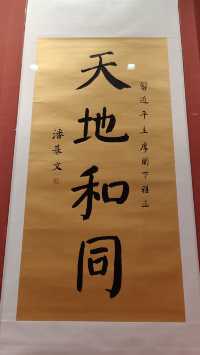 习近平主席阁下雅正
天地和同
潘基文